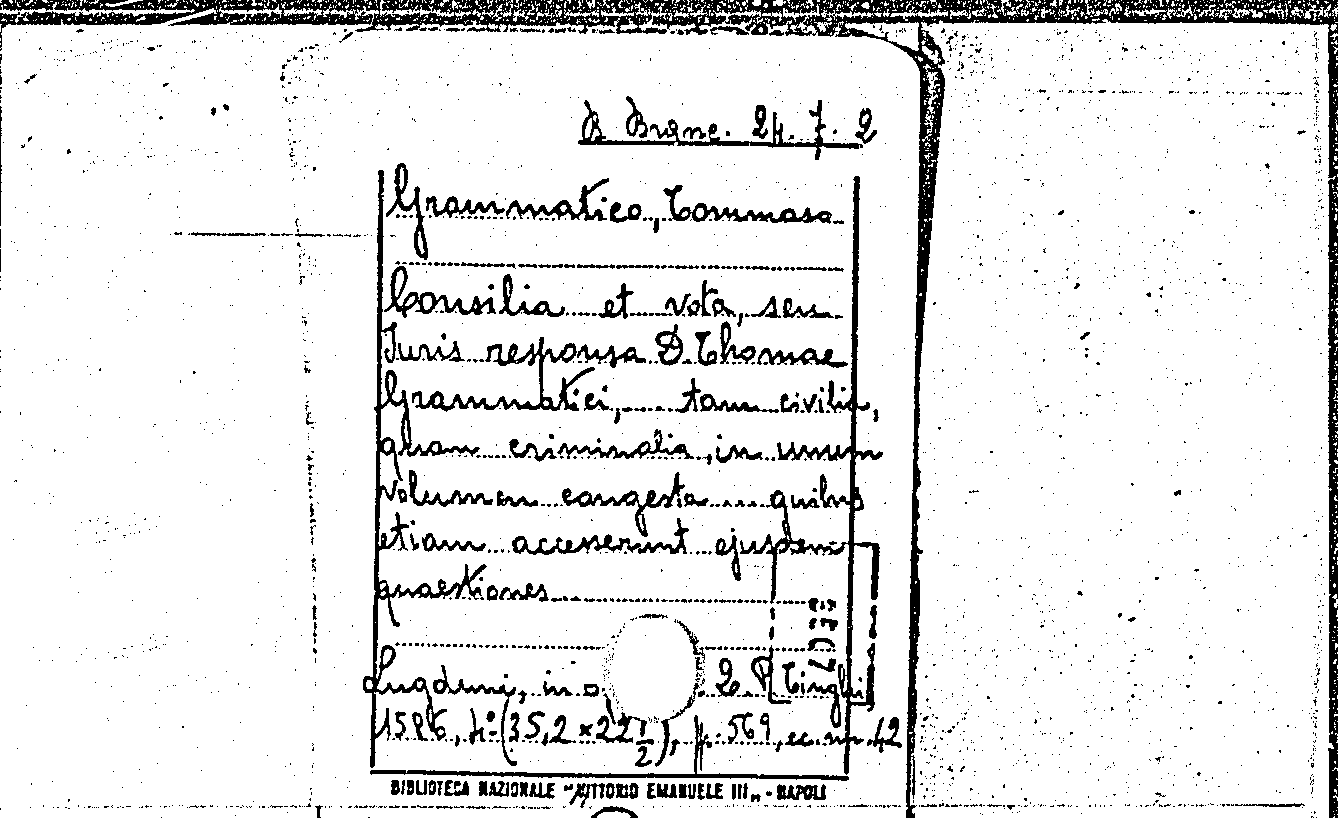 B. Branc. 24. 7. 2
Grammatico, Tommaso
Consilia et vota, seu
Iuris responsa D. Thomae
Grammatici, ... tam civilia,
quam criminalia, in unum
volumen congesta ... quibus
etiam accesserunt ejusdem
quaestiones...
Lugduni, in o . Q. P. Tinghi
1586, 4º (35,2 × 22 1/2), p. 569, cc. nn. 42
BIBLIOTECA NAZIONALE "VITTORIO EMANUELE III" - NAPOLI